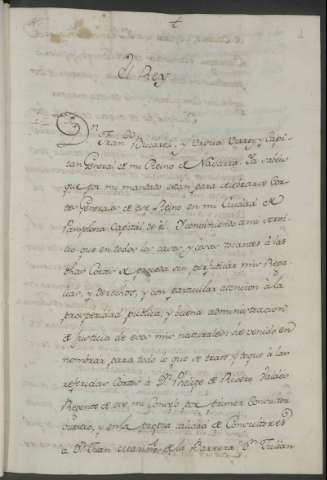 El Rey
Dn. Fran.co Bucareli, y Ursua Virrey y Capi
tan General de mi Reino de Navarra. Ya sabeis
que por mi mandato están para celebrarse Cor
tes Generales de ese Reino en mi Ciudad de
Pamplona Capital de él. Y conviniendo a mi servi
cio que en todos los casos, y cosas tocantes á las
dhas Cortes se proceda sin perjudicar mis Rega
lias, y derechos, y con particular atencion á la
prosperidad publica, y buena administracion
de Justicia de esos mis naturales he venido en
nombrar para todo lo que se trate y toque á las
referidas Cortes á Dn. Phelipe de Rivero Valdés
Regente de ese mi Consejo por primer Consultor
y en la propia calidad de Consultores
á Dn. Fran.co de la Barrera Dn. Julian